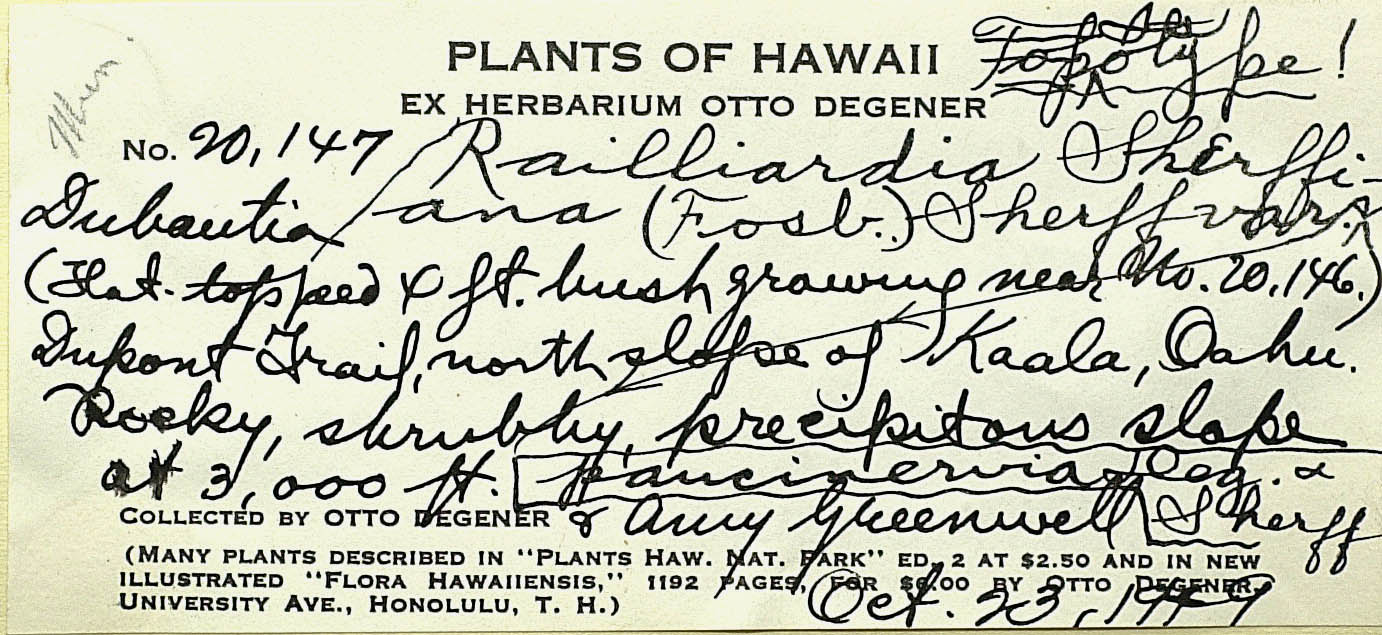 PLANTS OF HAWAII Topotype!
EX HERBARIUM OTTO DEGENER
No. 20,147 Railliardia Sherffi-
Dubautia / ana (Fosb.) Sherff var.
(Flat-topped 4 ft. bush growing near No. 20,146.)
Dupont Trail, north slope of Kaala, Oahu.
Rocky, shrubby, precipitous slope
at 3,000 ft. paucinervia Deg. &
COLLECTED BY OTTO DEGENER & Amy Greenwell Sherff
(MANY PLANTS DESCRIBED IN "PLANTS HAW. NAT. PARK" ED. 2 AT $2.50 AND IN NEW
ILLUSTRATED "FLORA HAWAIIENSIS," 1192 PAGES, FOR $6.00 BY OTTO DEGENER,
UNIVERSITY AVE., HONOLULU, T. H.) Oct. 23, 1949